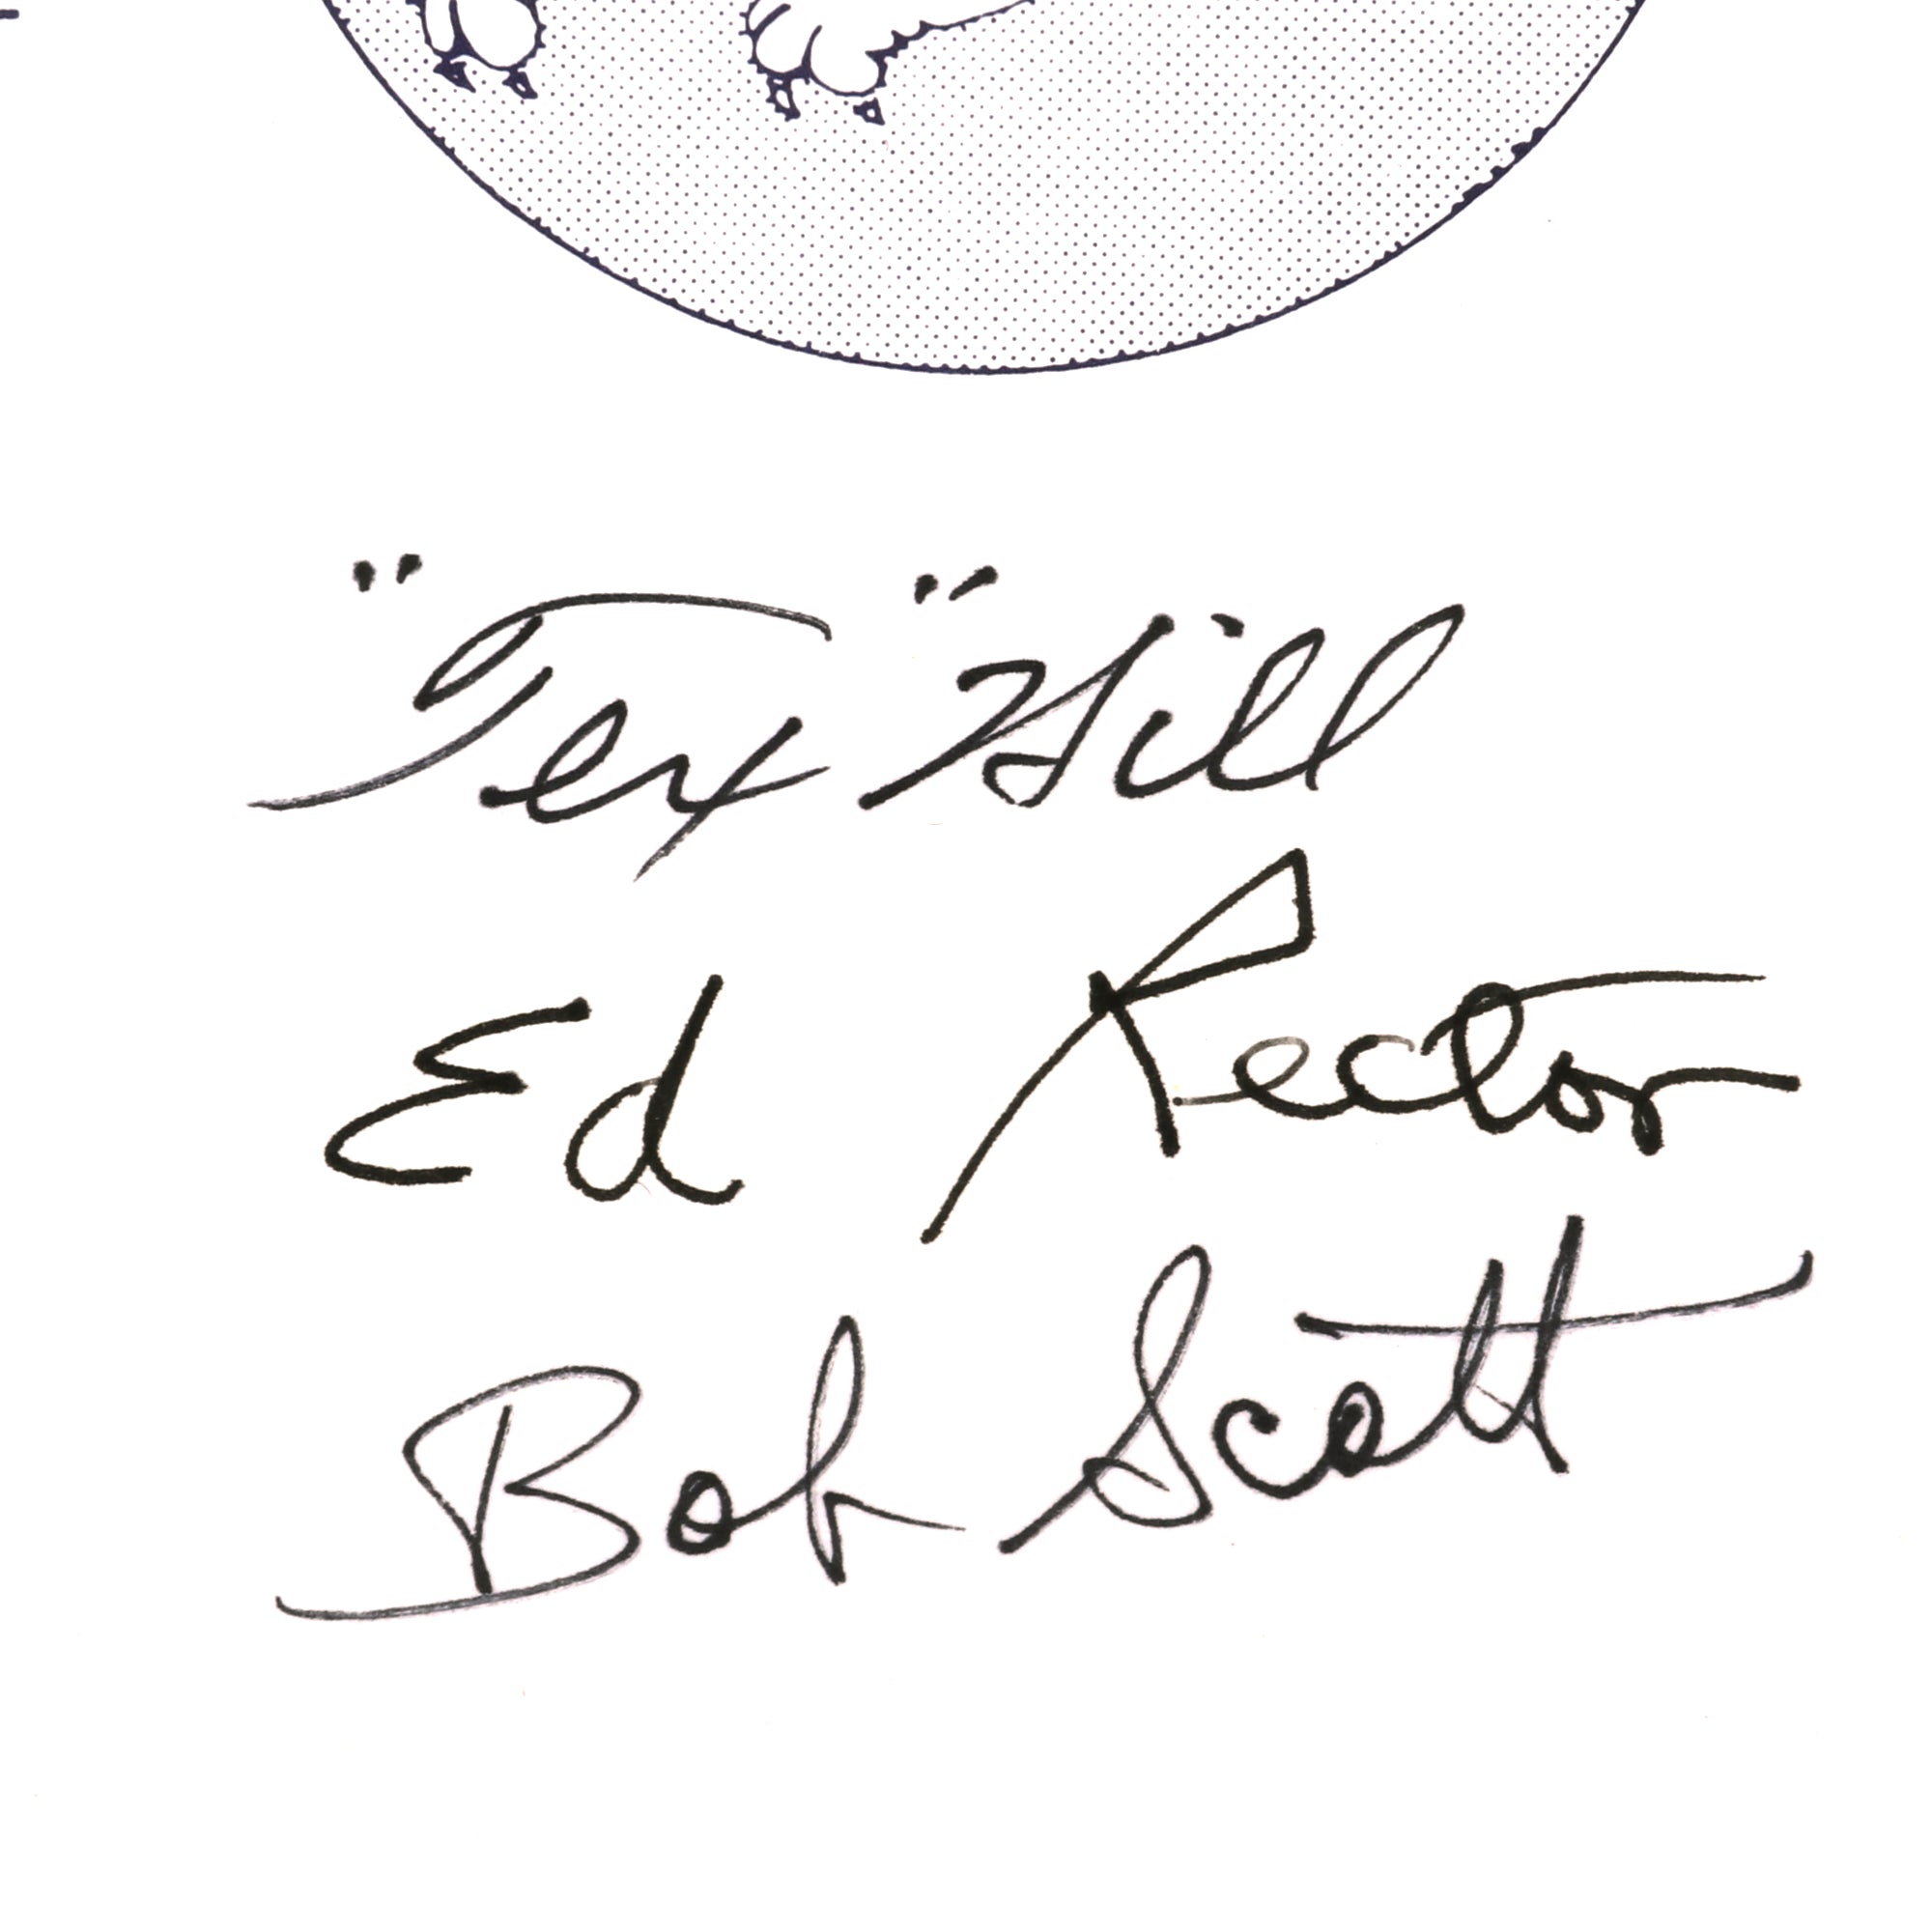 "Tex" Hill
Ed Rector
Bob Scott